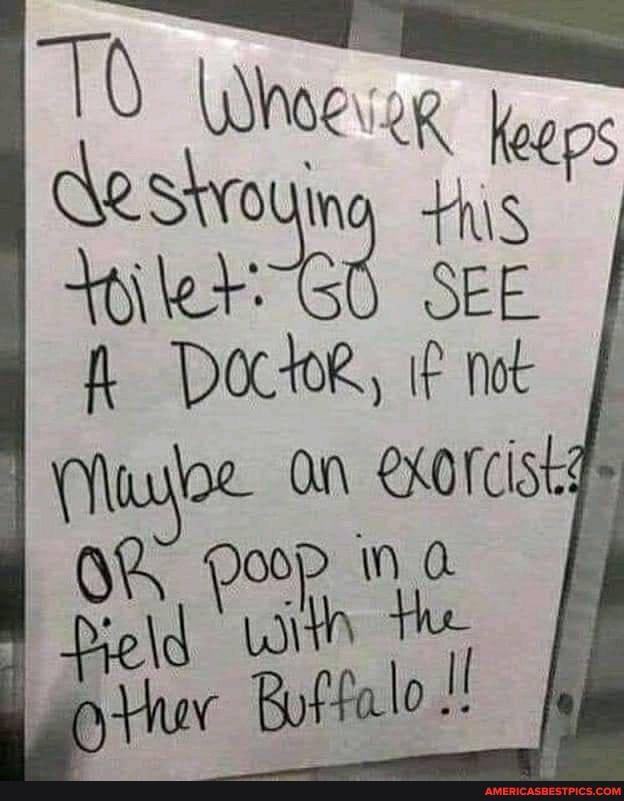 TO Whoever Keeps
destroying this
toilet: GO SEE
A DOCtoR, if not
maybe an exorcist.?
OR poop in a
field with the
other Buffalo!!
AMERICASBESTPICS.COM